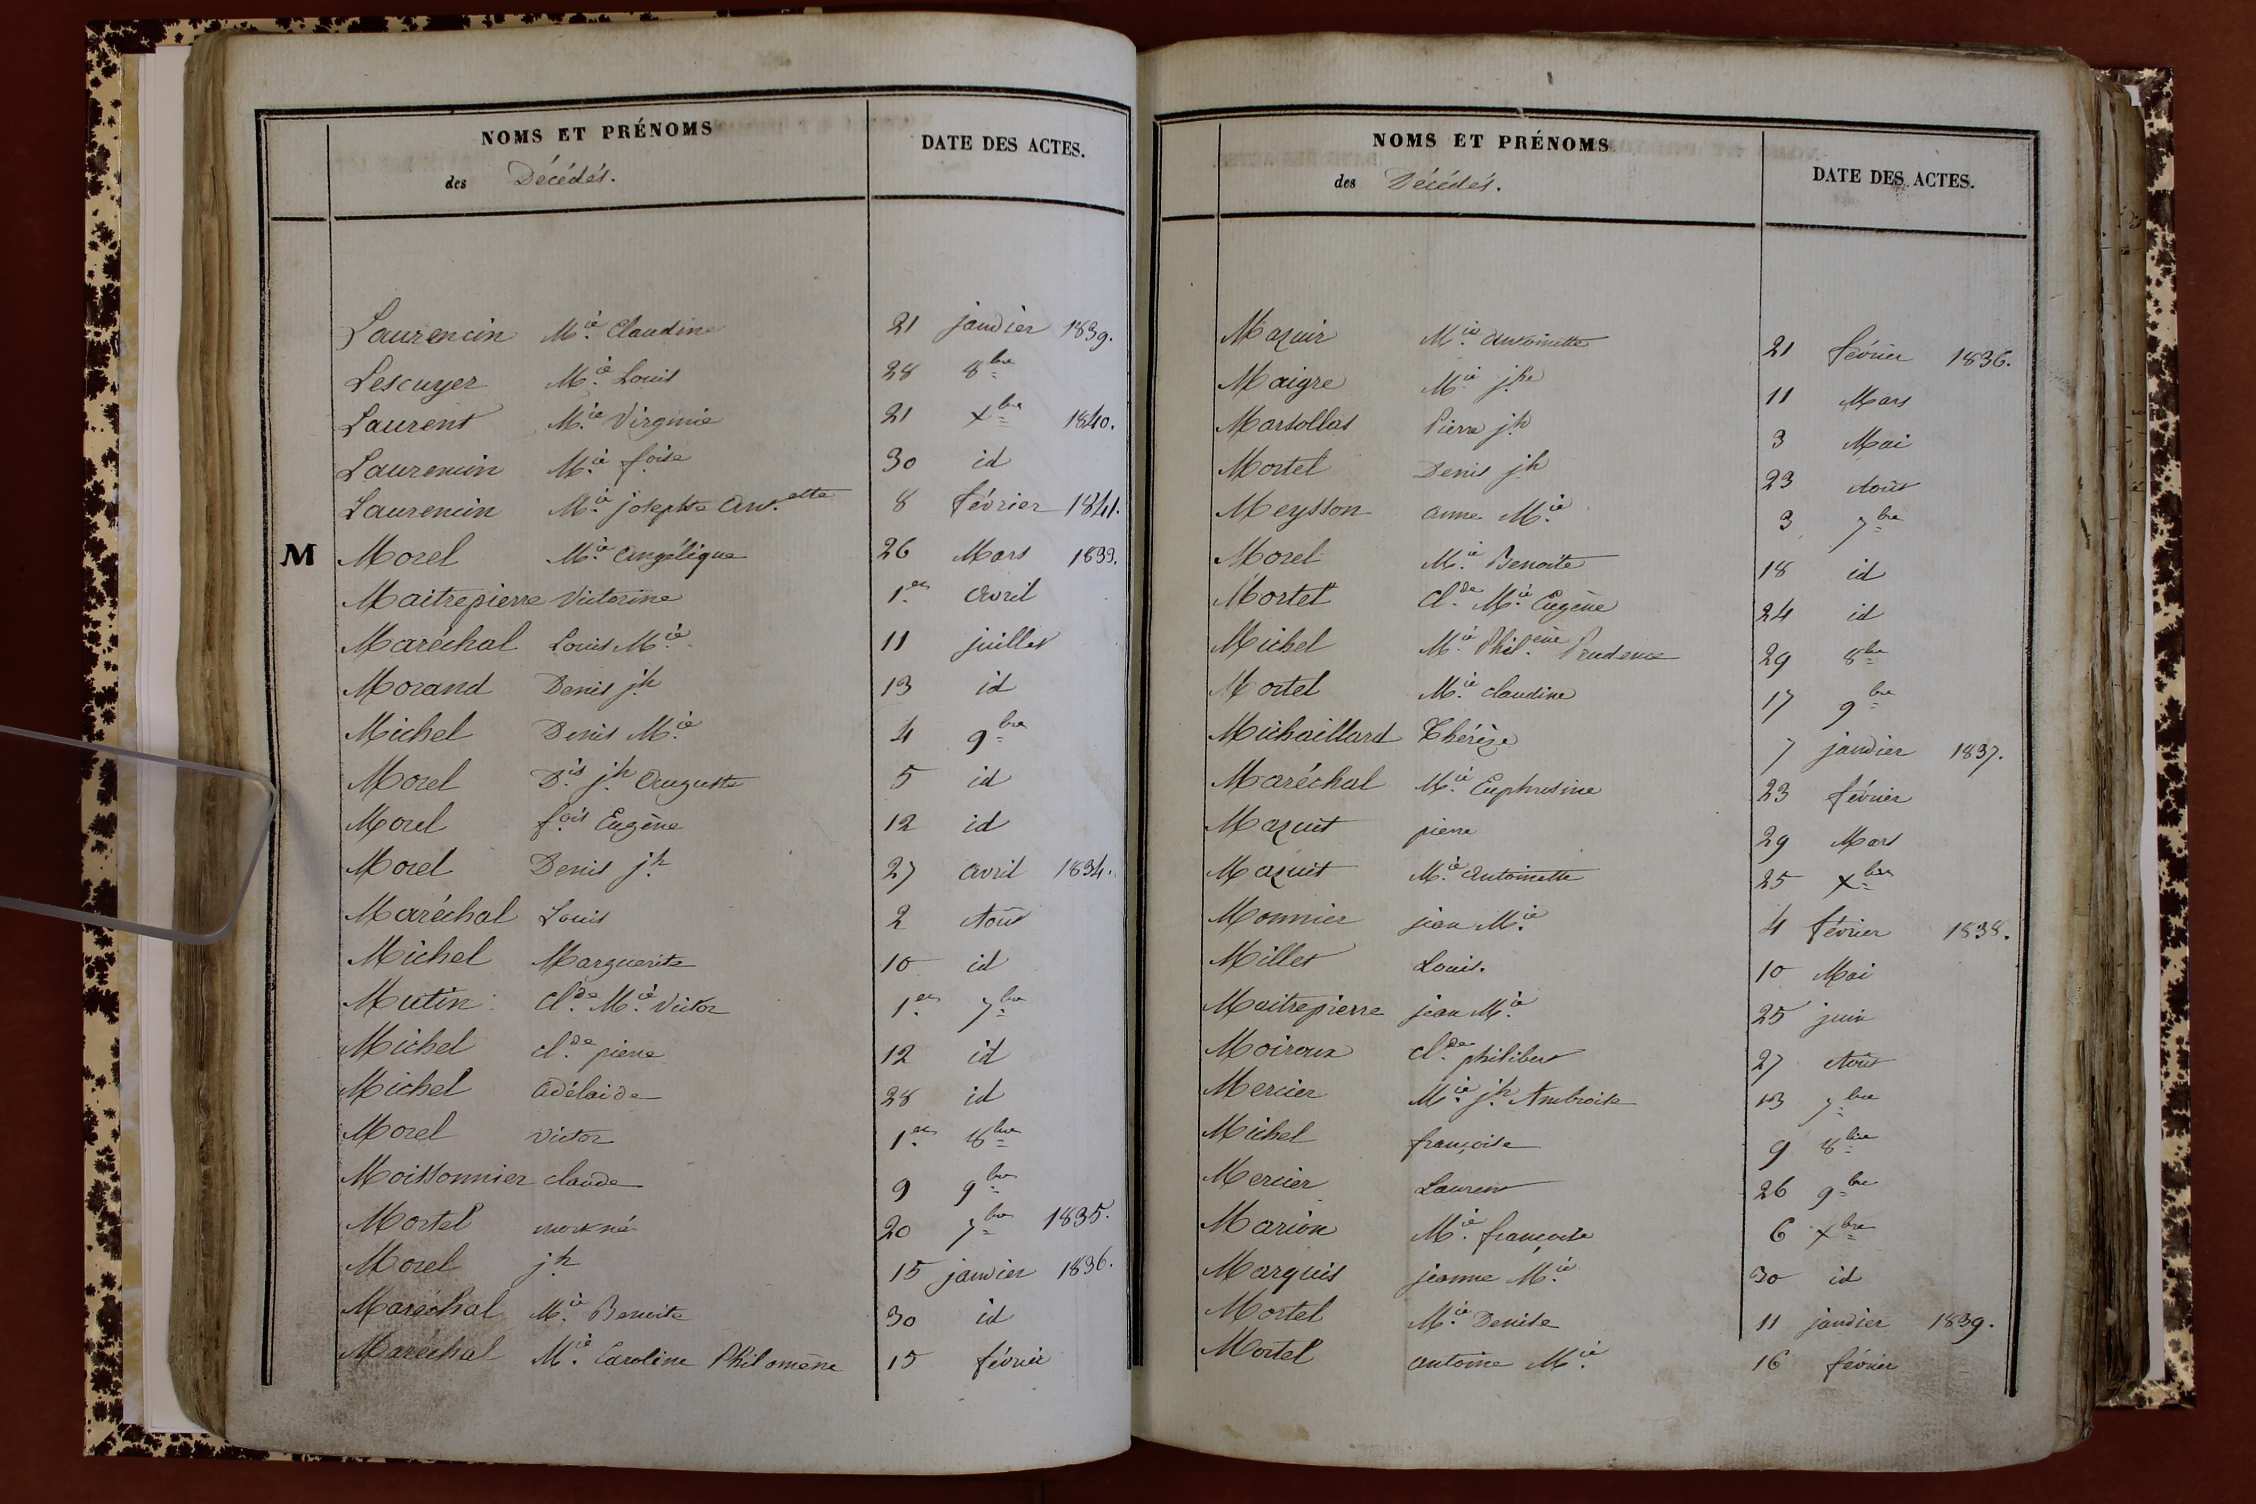 NOMS ET PRÉNOMS
des Décédés.
DATE DES ACTES.
Laurencin M.ie Claudine 21 janvier 1839.
Lescuyer M.ie Louis 28 8bre
Laurent M.ie Virginie 21 Xbre 1840.
Laurencin M.ie f.oise 30 id
Laurencin M.ie josephte Ant.ette 8 février 1841.
M Morel M.ie Angélique 26 Mars 1833.
Maitrepierre Victorine 1.er Avril
Maréchal Louis M.ie 11 juillet
Morand Denis j.h 13 id
Michel Denis M.ie 4 9bre
Morel D.is j.h Auguste 5 id
Morel f.ois Eugène 12 id
Morel Denis j.h 27 avril 1834.
Maréchal Louis 2 Août
Michel Marguerite 10 id
Mutin Cl.de M.ie Victor 1.er 7bre
Michel cl.de pierre 12 id
Michel adélaide 28 id
Morel victor 1.er 8bre
Moissonnier claude 9 9bre
Mortel mort né 20 7bre 1835.
Morel j.h 15 janvier 1836.
Maréchal M.ie Benoite 30 id
Maréchal M.ie Caroline Philomène 15 février
NOMS ET PRÉNOMS
des Décédés.
DATE DES ACTES.
Mazuir M.ie antoinette 21 février 1836.
Maigre M.ie j.he 11 Mars
Marsollas Pierre j.h 3 Mai
Mortel Denis j.h 23 Août
Meysson anne M.ie 3 7bre
Morel M.ie Benoite 18 id
Mortel Cl.de M.ie Eugène 24 id
Michel M.ie Phil.ène Prudence 29 8bre
Mortel M.ie claudine 17 9bre
Michaillard Thérèze 7 janvier 1837.
Maréchal M.ie Euphrosine 23 février
Mazuit pierre 29 Mars
Mazuit M.ie antoinette 25 Xbre
Monnier jean M.ie 4 février 1838.
Millet Louis. 10 Mai
Maitrepierre jean M.ie 25 juin
Moiroux cl.de philibert 27 Août
Mercier M.ie j.h Ambroise 13 7bre
Michel françoise 9 8bre
Mercier Laurent 26 9bre
Marion M.ie françoise 6 Xbre
Marquis jeanne M.ie 30 id
Mortel M.ie Denise 11 janvier 1839.
Mortel antoine M.ie 16 février